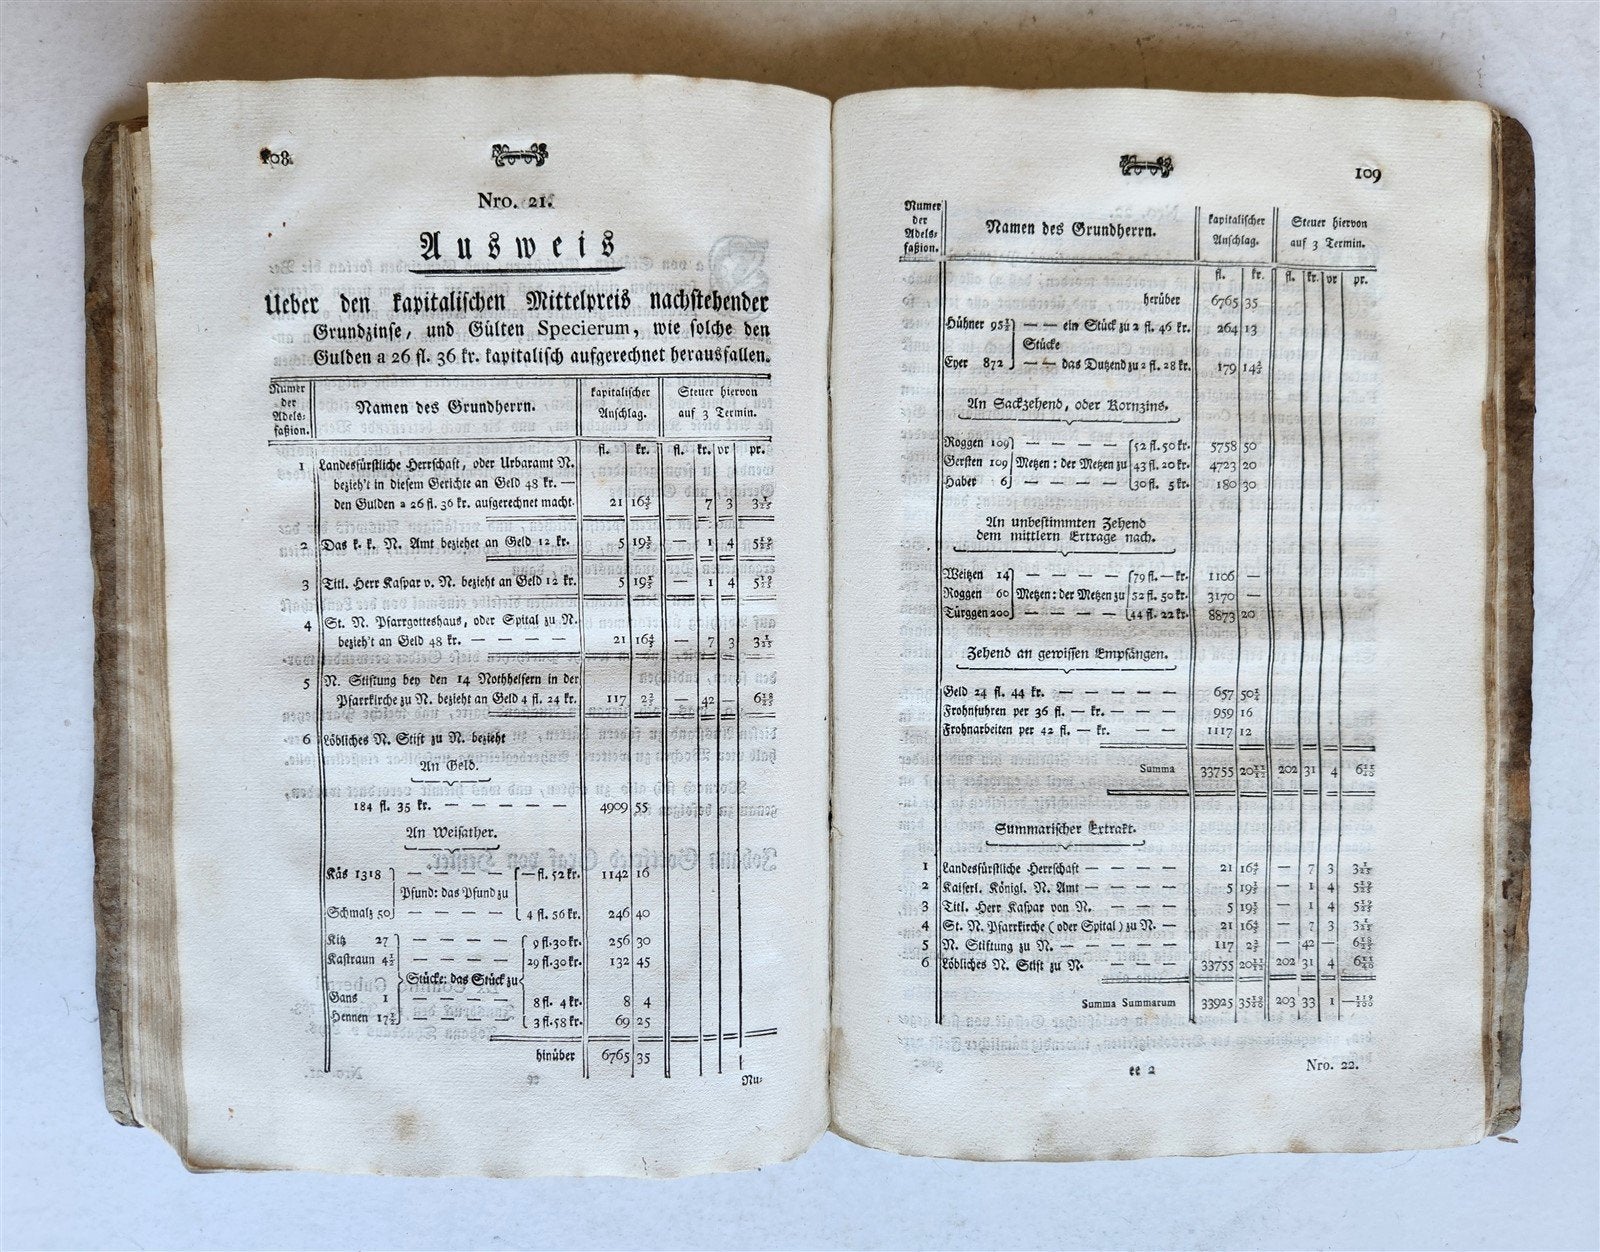 108
Nro. 21.
Ausweis
Ueber den kapitalischen Mittelpreis nachstehender
Grundzinse, und Gülten Specierum, wie solche den
Gulden a 26 fl. 36 kr. kapitalisch aufgerechnet herausfallen.
Numer der Adels-faßion. Namen des Grundherrn. kapitalischer Anschlag. Steuer hiervon auf 3 Termin.
fl. kr. fl. kr. vr pr.
1 Landesfürstliche Herrschaft, oder Urbaramt N.
bezieh't in diesem Gerichte an Geld 48 kr. —
den Gulden a 26 fl. 36 kr. aufgerechnet macht. 21 16⅘ 7 3
2 Das k. k. N. Amt beziehet an Geld 12 kr. 5 19⅕ — 1 4
3 Titl. Herr Kaspar v. N. bezieht an Geld 12 kr. 5 19⅕ — 1 4
4 St. N. Pfarrgotteshaus, oder Spital zu N.
bezieh't an Geld 48 kr. — — — — 21 16⅘ — 7 3
5 N. Stiftung bey den 14 Nothhelfern in der
Pfarrkirche zu N. bezieht an Geld 4 fl. 24 kr. 117 2⅖ — 42 —
6 Löbliches N. Stift zu N. bezieht
An Geld.
184 fl. 35 kr. — — — — — 4909 55
An Weisather.
Käs 1318 — — — — — fl. 52 kr. 1142 16
Pfund: das Pfund zu
Schmalz 50 — — — — 4 fl. 56 kr. 246 40
Kitz 27 — — — — 9 fl. 30 kr. 256 30
Kastraun 4½ — — — — 29 fl. 30 kr. 132 45
Stücke: das Stück zu
Gans 1 — — — — 8 fl. 4 kr. 8 4
Hennen 17½ — — — — 3 fl. 58 kr. 69 25
hinüber 6765 35
ee Nu-
109
Numer der Adels-faßion. Namen des Grundherrn. kapitalischer Anschlag. Steuer hiervon auf 3 Termin.
fl. kr. fl. kr. vr pr.
herüber 6765 35
Hühner 95½ — — ein Stück zu 2 fl. 46 kr. 264 13
Stücke
Eyer 872 — — das Dutzend zu 2 fl. 28 kr. 179 14⅖
An Sackzehend, oder Kornzins.
Roggen 109 — — — — — 52 fl. 50 kr. 5758 50
Gersten 109 Metzen: der Metzen zu 43 fl. 20 kr. 4723 20
Haber 6 — — — — — 30 fl. 5 kr. 180 30
An unbestimmten Zehend
dem mittlern Ertrage nach.
Weitzen 14 — — — — — 79 fl. — kr. 1106 —
Roggen 60 Metzen: der Metzen zu 52 fl. 50 kr. 3170 —
Türggen 200 — — — — — 44 fl. 22 kr. 8873 20
Zehend an gewissen Empfängen.
Geld 24 fl. 44 kr. — — — — — 657
Frohnfuhren per 36 fl. — kr. — — — — 959 16
Frohnarbeiten per 42 fl. — kr. — — — 1117 12
Summa 33755 202 31 4
Summarischer Extrakt.
1 Landesfürstliche Herrschaft — — — — 21 16⅘ — 7 3
2 Kaiserl. Königl. N. Amt — — — — 5 19⅕ — 1 4
3 Titl. Herr Kaspar von N. — — — 5 19⅕ — 1 4
4 St. N. Pfarrkirche (oder Spital) zu N. — 21 16⅘ — 7 3
5 N. Stiftung zu N. — — — — — 117 2⅖ — 42 —
6 Löbliches N. Stift zu N. — — — — 33755 202 31 4
Summa Summarum 33925 203 33 1
ee 2 Nro. 22.